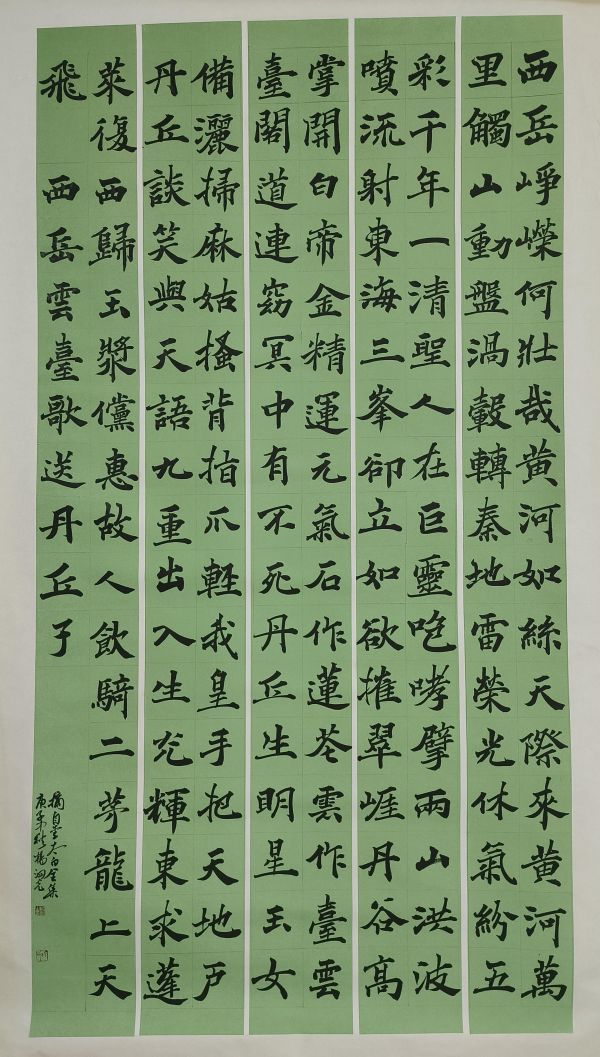 西岳崢嶸何壯哉黄河如絲天際來黄河萬
里觸山動盤渦轂轉秦地雷榮光休氣紛五
彩千年一清聖人在巨靈咆哮擘兩山洪波
噴流射東海三峯卻立如欲摧翠崖丹谷高
掌開白帝金精運元氣石作蓮花雲作臺雲
臺閣道連窈冥中有不死丹丘生明星玉女
備灑掃麻姑搔背指爪輕我皇手把天地戶
丹丘談笑與天語九重出入生光輝東求蓬
萊復西歸玉漿儻惠故人飲騎二茅龍上天
飛 西岳雲臺歌送丹丘子
摘自李太白全集
庚子秋楊